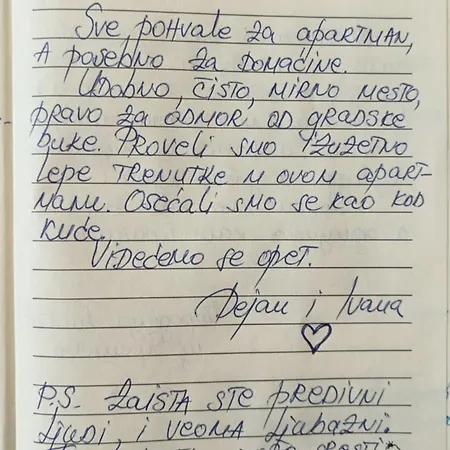 Sve pohvale za apartman,
A posebno za domaćine.
Udobno, čisto, mirno mesto,
pravo za odmor od gradske
buke. Proveli smo izuzetno
lepe trenutke u ovom apart-
manu. Osećali smo se kao kod
kuće.
Videćemo se opet.
Dejan i Ivana
P.S. Zaista ste predivni
ljudi, i veoma ljubazni.